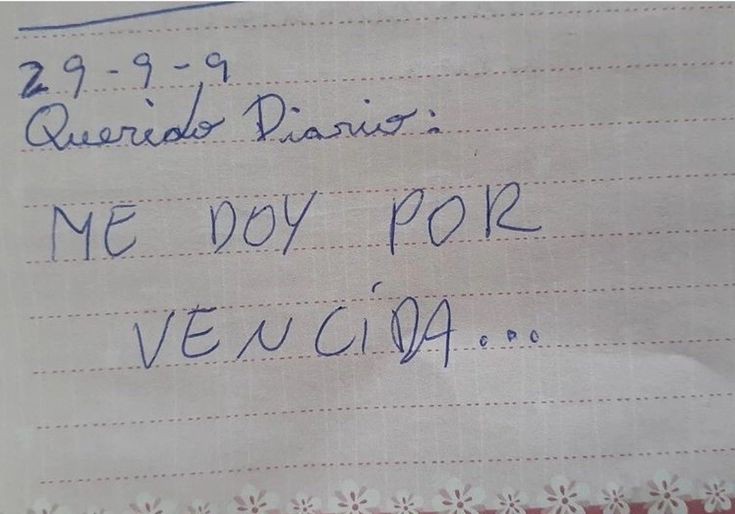 29-9-9
Querido Diario:
ME DOY POR
VENCIDA...